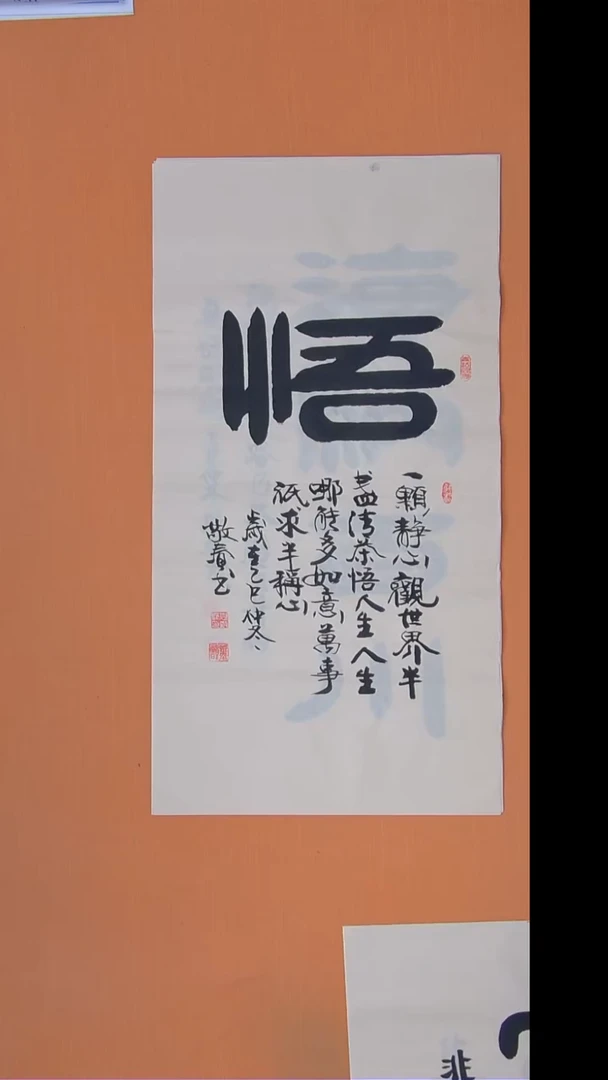 悟
一顆静心觀世界半
盞清茶悟人生人生
哪能多如意萬事
祇求半稱心
歲在乙巳仲冬
敬賢书
非